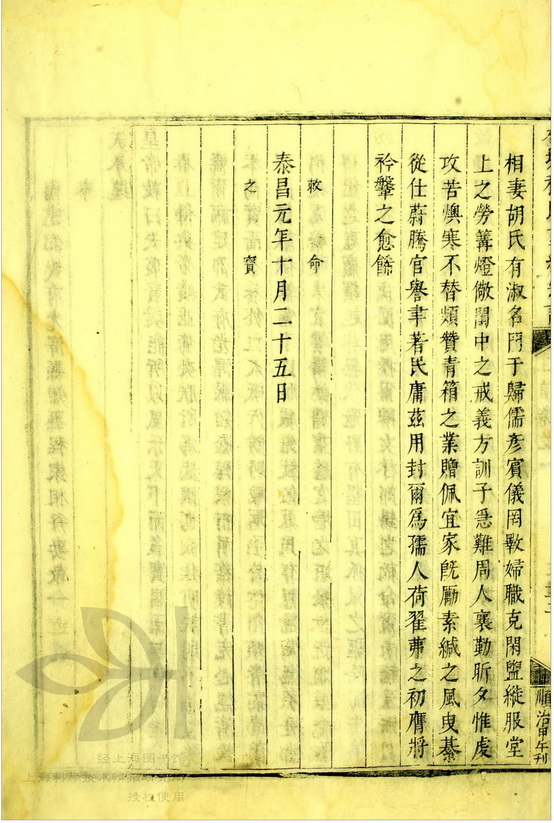 相妻胡氏有淑名門于歸儒彥賓儀罔斁婦職克閑盥縰服堂
上之勞篝燈儆閨中之戒義方訓子急難周人襄勤昕夕惟虔
攻苦燠寒不替頻贊青箱之業贈佩宜家旣勵素緘之風曳綦
從仕蔚騰官譽聿著民庸茲用封爾爲孺人荷翟茀之初膺將
衿鞶之愈餙
敕命
泰昌元年十月二十五日
之寶
順治甲午刊
经上海图书馆
授权使用